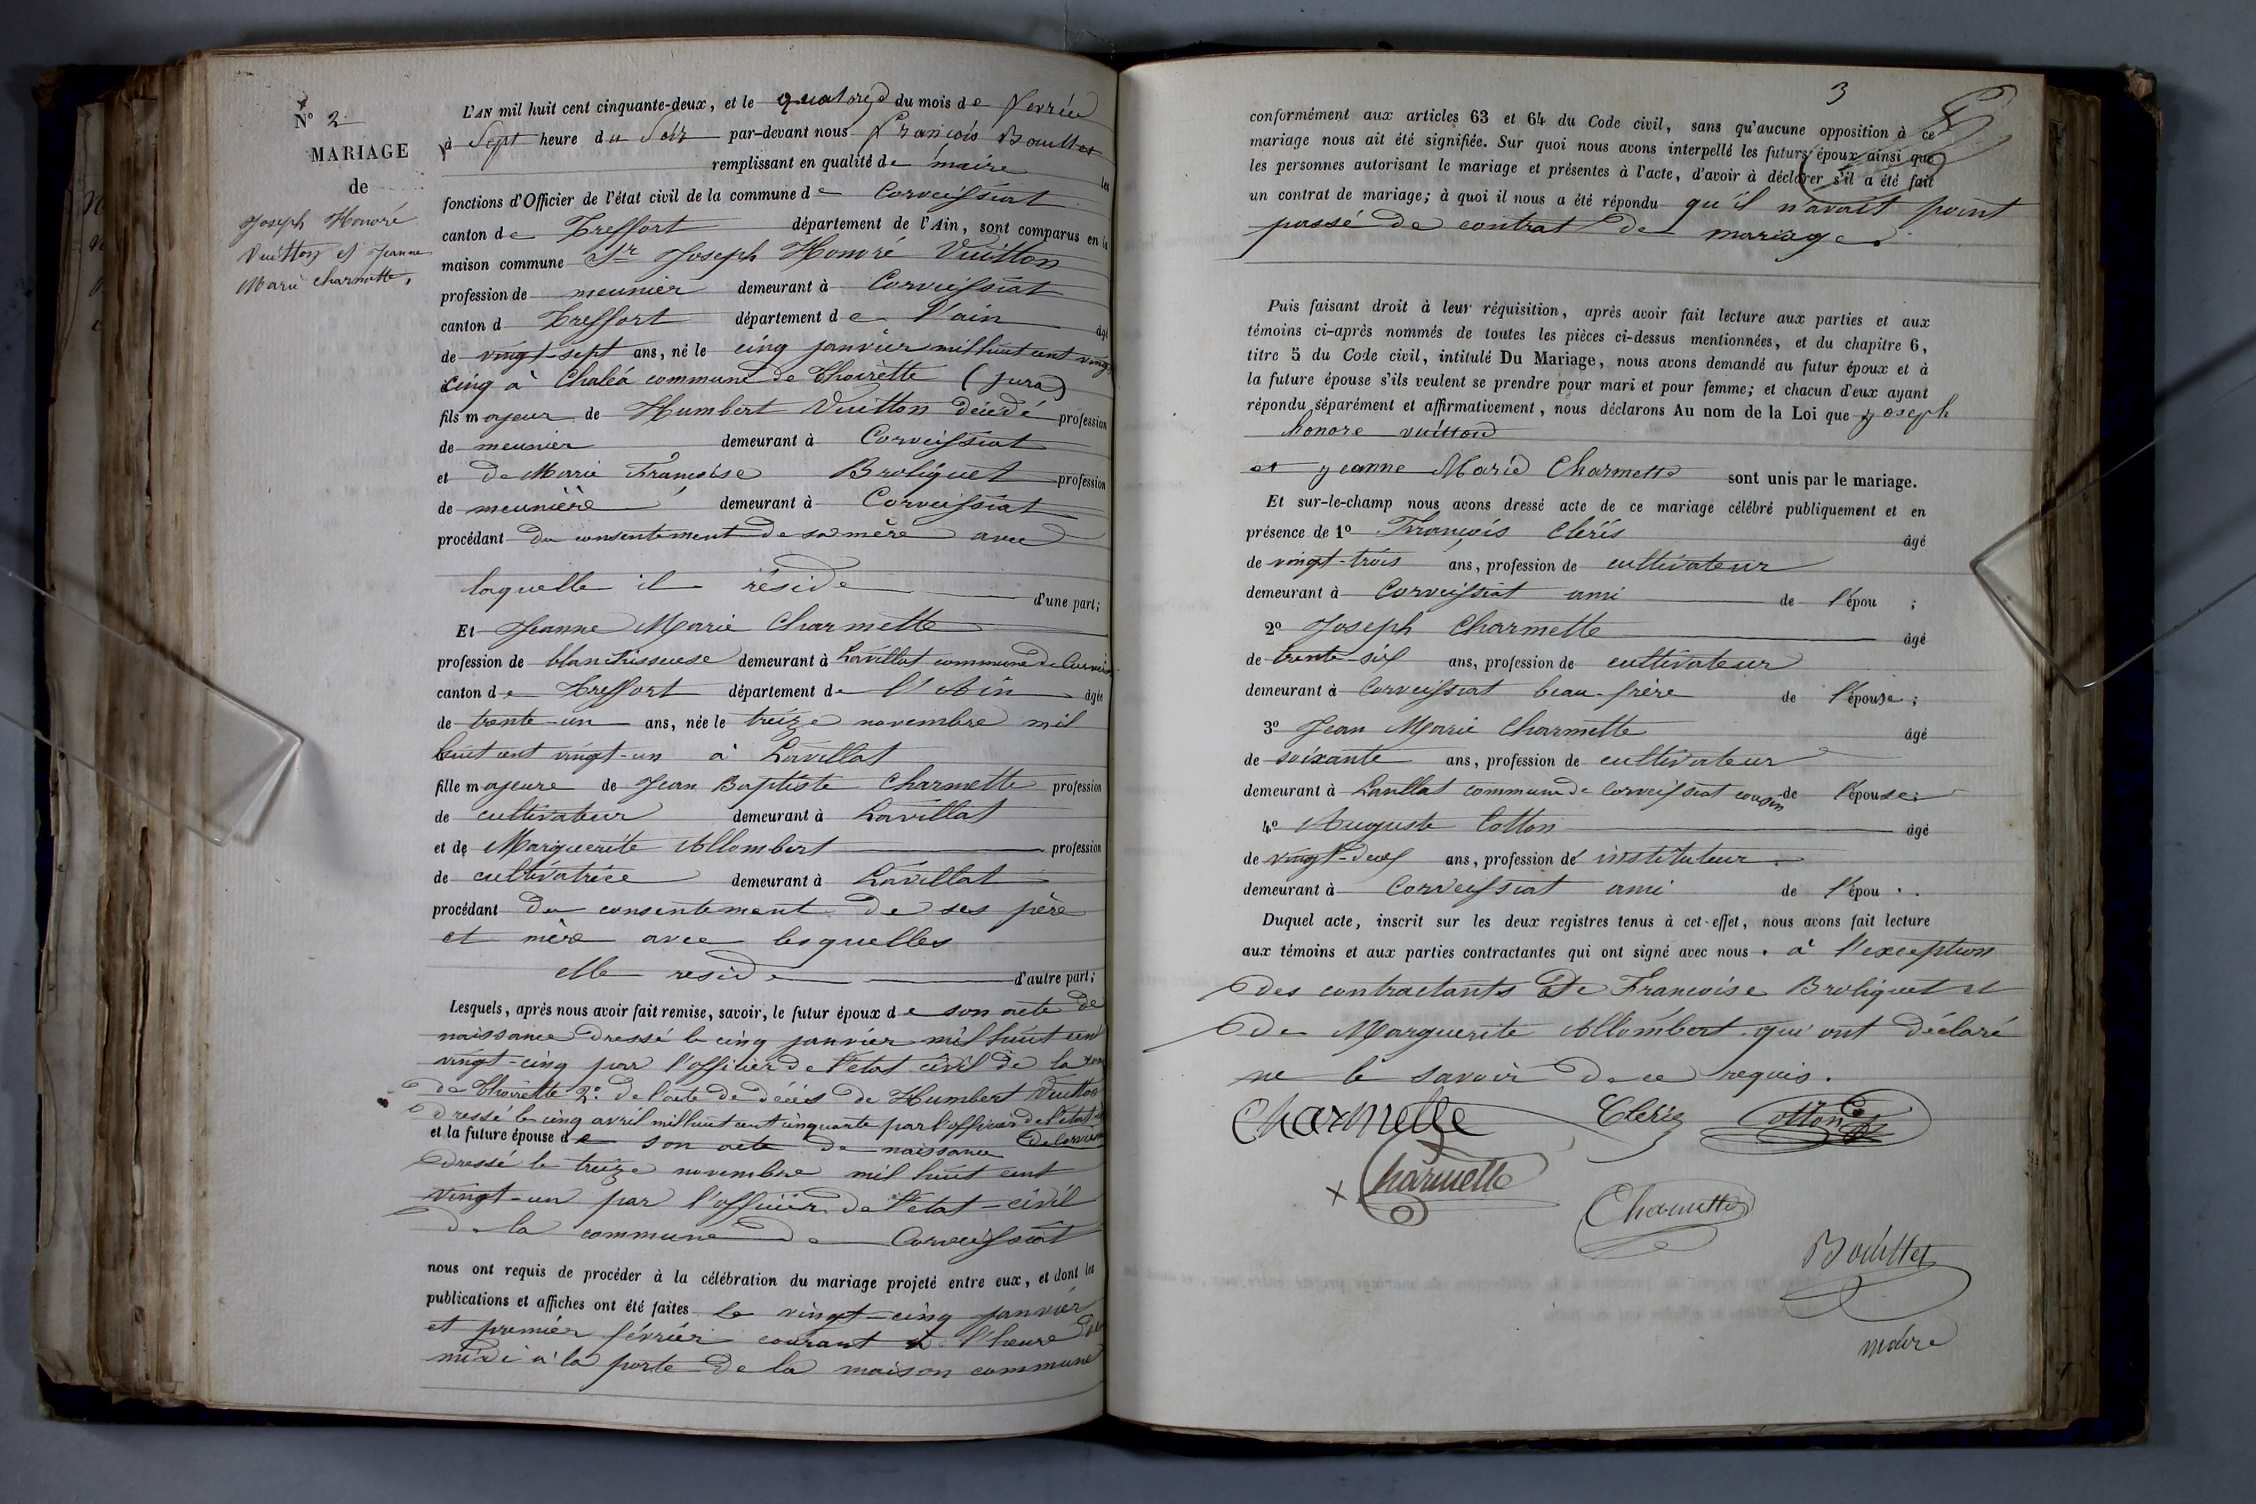 N° 2
MARIAGE
de
Joseph Honoré
Vuitton et Jeanne
Marie Charmette.
L'AN mil huit cent cinquante-deux, et le quatorze du mois de Fevrier
à Sept heure du Soir par-devant nous François Bouillet
remplissant en qualité de maire les
fonctions d'Officier de l'état civil de la commune de Corveissiat
canton de Treffort département de l'Ain, sont comparus en la
maison commune Sr Joseph Honoré Vuitton
profession de meunier demeurant à Corveissiat
canton d Treffort département de l'ain âgé
de vingt-sept ans, né le cinq janvier mil huit cent vingt
cinq à Chaléa commune de Thoirette (jura)
fils majeur de Humbert Vuitton décédé profession
de meunier demeurant à Corveissiat
et de Marie Françoise Broliquet profession
de meunière demeurant à Corveissiat
procédant du consentement de sa mère avec
laquelle il réside d'une part;
Et Jeanne Marie Charmette
profession de blanchisseuse demeurant à Lavillat commune de Corveis
canton de Treffort département de l'Ain âgée
de trente-un ans, née le treize novembre mil
huit cent vingt-un à Lavillat
fille majeure de Jean Baptiste Charmette profession
de cultivateur demeurant à Lavillat
et de Marguerite Allombert profession
de cultivatrice demeurant à Lavillat
procédant du consentement de ses père
et mère avec lesquelles
elle reside d'autre part;
Lesquels, après nous avoir fait remise, savoir, le futur époux de son acte de
naissance dressé le cinq janvier mil huit cent
vingt-cinq par l'officier de l'état civil de la com
de Thoirette 2° de l'acte de décès de Humbert Vuitton
dressé le cinq avril mil huit cent cinquante par l'officier de l'état
et la future épouse de son acte de naissance de Corveis
dressé le treize novembre mil huit cent
vingt-un par l'officier de l'etat-civil
de la commune de Corveissiat
nous ont requis de procéder à la célébration du mariage projeté entre eux, et dont les
publications et affiches ont été faites le vingt-cinq janvier
et premier février courant à l'heure de
midi à la porte de la maison commune
3
conformément aux articles 63 et 64 du Code civil, sans qu'aucune opposition à ce
mariage nous ait été signifiée. Sur quoi nous avons interpellé les futurs époux ainsi que
les personnes autorisant le mariage et présentes à l'acte, d'avoir à déclarer s'il a été fait
un contrat de mariage; à quoi il nous a été répondu qu'il n'avait point
passé de contrat de mariage.
Puis faisant droit à leur réquisition, après avoir fait lecture aux parties et aux
témoins ci-après nommés de toutes les pièces ci-dessus mentionnées, et du chapitre 6,
titre 5 du Code civil, intitulé Du Mariage, nous avons demandé au futur époux et à
la future épouse s'ils veulent se prendre pour mari et pour femme; et chacun d'eux ayant
répondu séparément et affirmativement, nous déclarons Au nom de la Loi que joseph
honore vuitton
et jeanne Marie Charmette sont unis par le mariage.
Et sur-le-champ nous avons dressé acte de ce mariage célébré publiquement et en
présence de 1° François Cléris âgé
de vingt-trois ans, profession de cultivateur
demeurant à Corveissiat ami de l'épou ;
2° Joseph Charmette âgé
de trente-six ans, profession de cultivateur
demeurant à Corveissiat beau-frère de l'épouse;
3° Jean Marie Charmette âgé
de soixante ans, profession de cultivateur
demeurant à Lavillat commune de Corveissiat cousin de l'épouse;
4° Auguste Cotton âgé
de vingt-deux ans, profession de instituteur
demeurant à Corveissiat ami de l'épou .
Duquel acte, inscrit sur les deux registres tenus à cet effet, nous avons fait lecture
aux témoins et aux parties contractantes qui ont signé avec nous. à l'exception
des contractants de Francoise Broliquet et
de Marguerite Allombert qui ont déclaré
ne le savoir de ce requis.
Charmette Cléris Cotton
Charmette
Charmette
Bouillet
maire